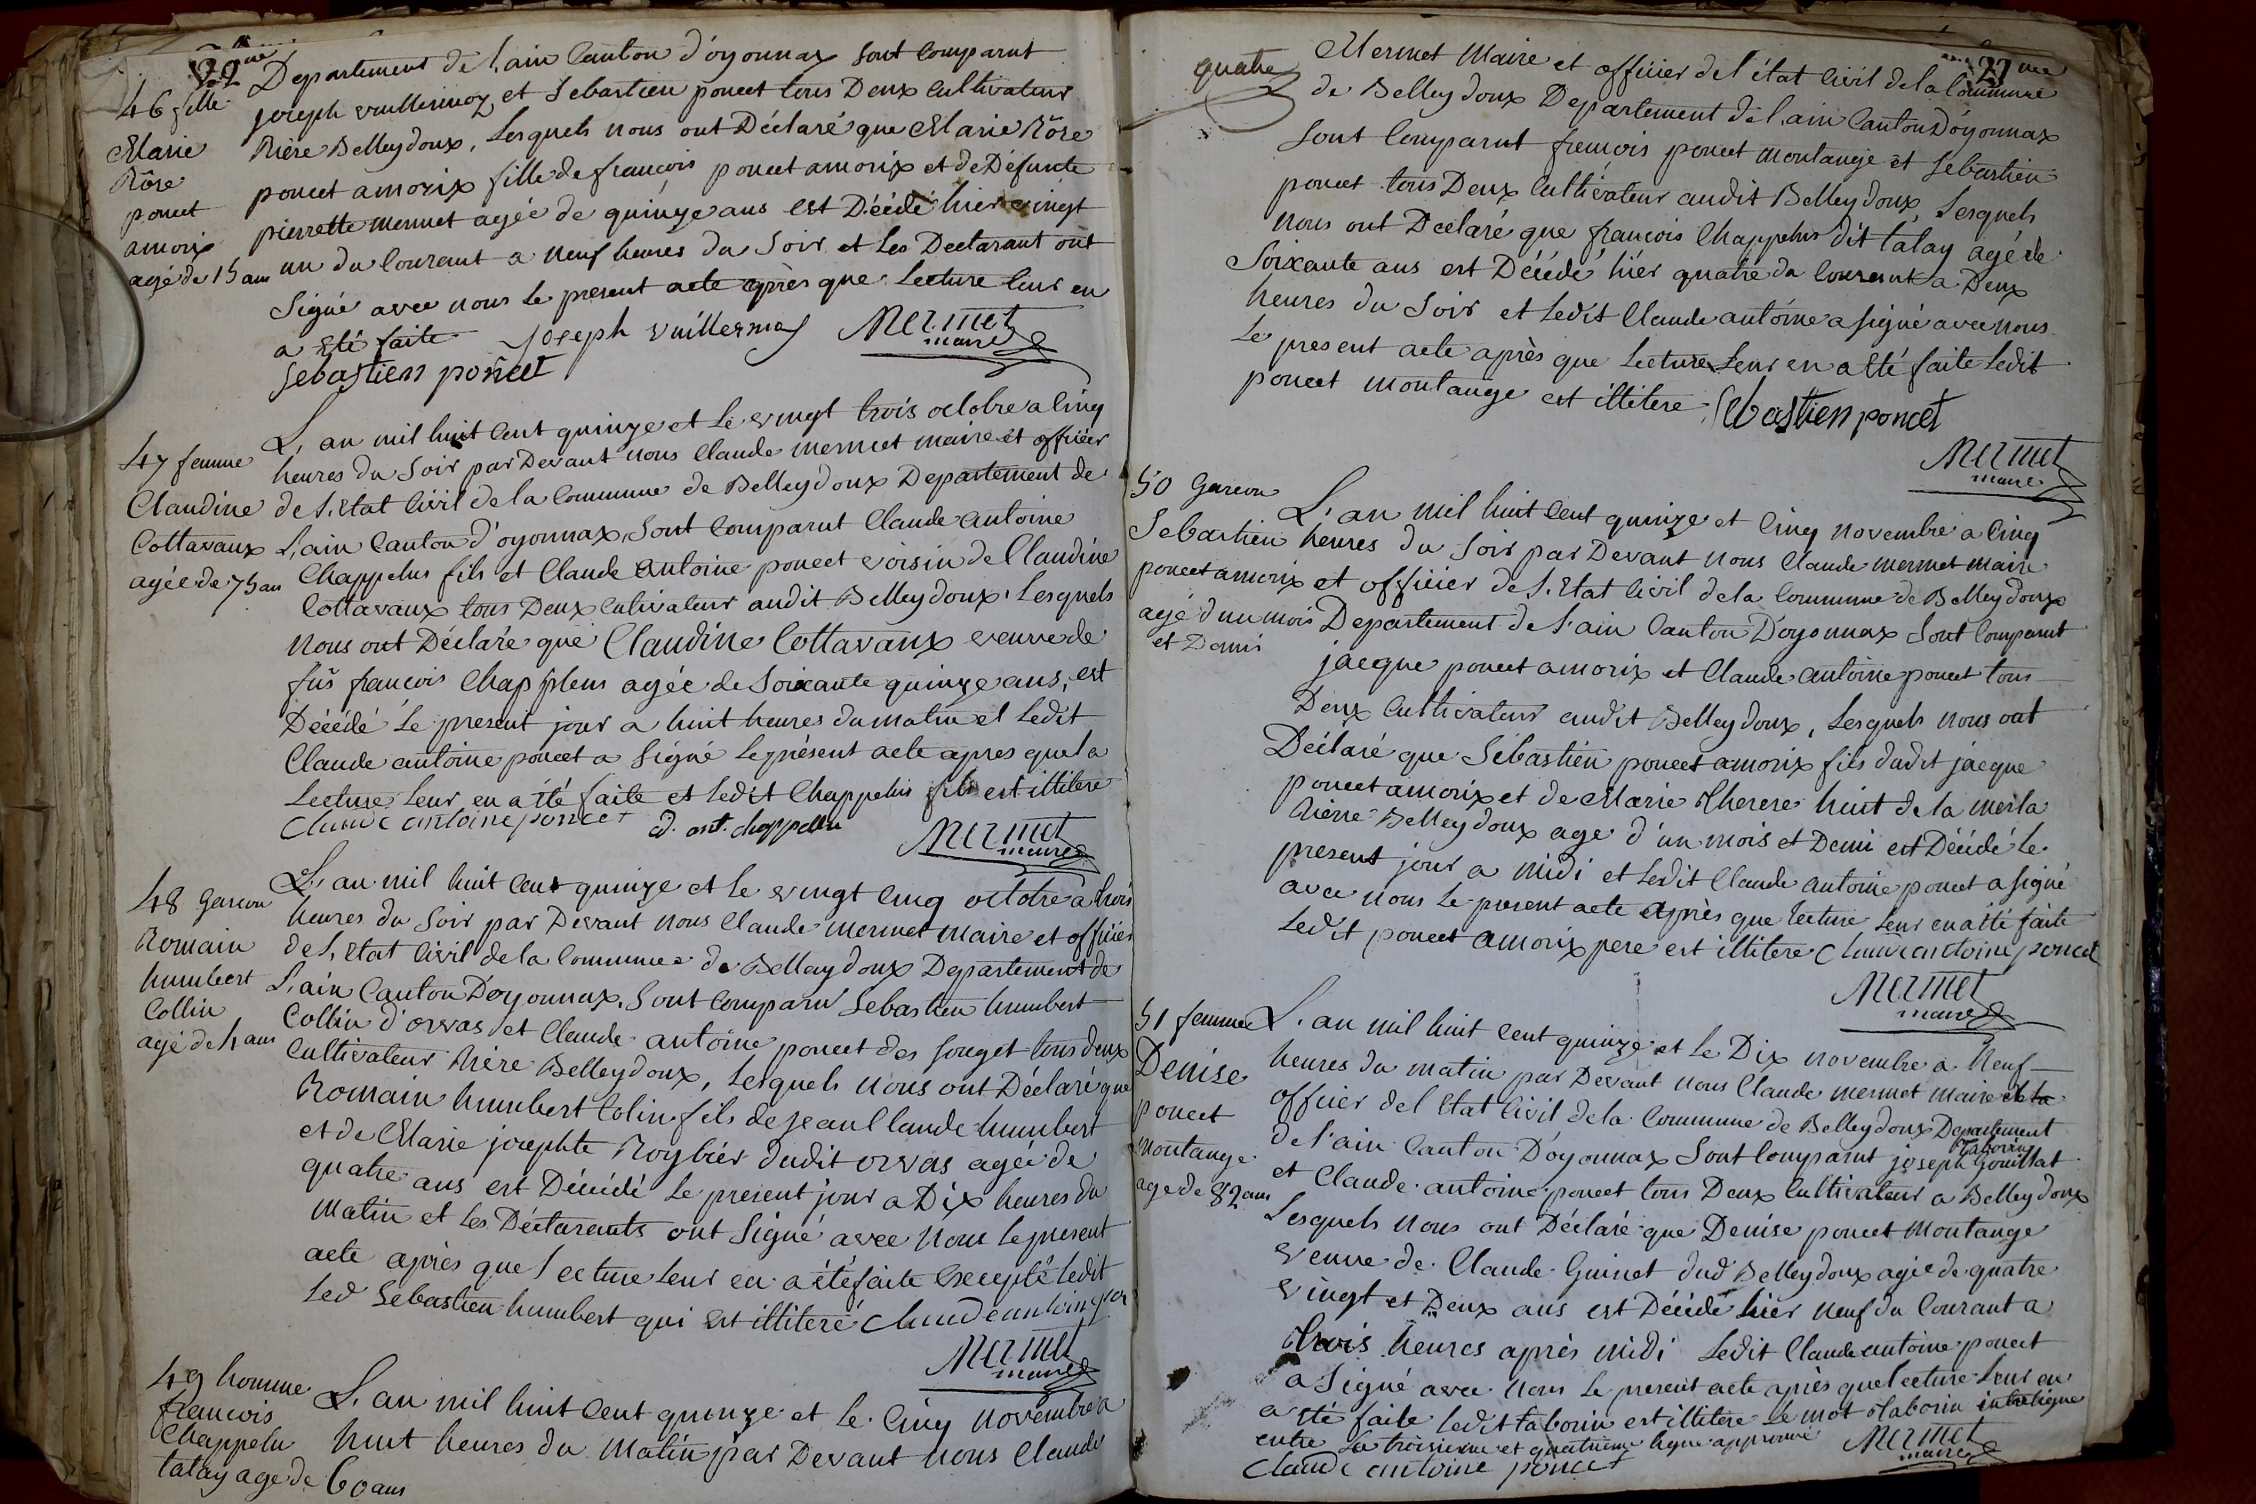 22me
Departement de l,ain Canton d'oyonnax sont comparut
46 fille
joseph vuillermoz et Sebastien poncet tous Deux Cultivateur
Marie
Rôse
poncet
amorix
agée de 15 ans
Rière Belleydoux, Lesquels nous ont Déclaré que Marie Rôse
poncet amorix fille de francois poncet amorix et de Défunte
pierrette mermet agée de quinze ans est Décédé hier vingt
un du Courant a neuf heures du Soir et Les Declarant ont
Signé avec nous Le present acte après que Lecture leur en
a été faite joseph vuillermoz Mermet
maire
Sebastien poncet
47 femme
Claudine
Cottavaux
agée de 75 ans
L,an mil huit Cent quinze et Le vingt trois octobre a Cinq
heures du Soir par Devant nous Claude mermet maire et officier
de L,Etat Civil de la Commune de Belleydoux Departement de
L,ain Canton d'oyonnax, Sont Comparut Claude antoine
Chappelus fils et Claude antoine poncet voisin de Claudine
Cottavaux tous Deux Cultivateur audit Belleydoux, Lesquels
Nous ont Déclaré que Claudine Cottavaux veuve de
fus francois Chappleus agée de Soixante quinze ans, est
Décédé Le present jour a huit heures du matin et Ledit
Claude antoine poncet a Signé Le présent acte apres que la
Lecture Leur en a été faite et Ledit Chappelus fils est illitere
Claude antoine poncet cd. ant. chappellu Mermet
maire
48 Garcon
Romain
humbert
Collin
agé de 4 ans
L,an mil huit Cent quinze et Le vingt Cinq octobre a trois
heures du Soir par Devant nous Claude mermet maire et officier
de L,Etat Civil de la Commune de Belleydoux Departement de
L,ain Canton D'oyonnax, Sont Comparu Sebastien humbert
Collin d'orvas et Claude antoine poncet des Souget tous deux
Cultivateur Rière Belleydoux, Lesquels nous ont Déclaré que
Romain humbert Colin fils de jean Claude humbert
et de Marie josephte Roybiér dudit orvas agée de
quatre ans est Décédé Le present jour a Dix heures du
matin et Les Déclarants ont Signé avec nous Le present
acte après que Lecture Leur en a été faite Excepté Ledit
Led Sebastien humbert qui est illiteré Claude antoine
Mermet
maire
49 homme
francois
Chappelu
talay age de 60 ans
L,an mil huit Cent quinze et Le Cinq novembre a
huit heures du Matin par Devant nous Claude
27me
quatre
Mermet Maire et officier de l'état Civil de la Commune
de Belleydoux Departement de l,ain Canton D'oyonnax
Sont Comparut francois poncet montange et Sebastien
poncet tous Deux Cultivateur audit Belleydoux, Lesquels
nous ont Déclaré que francois Chappelus dit talay agé de
Soixante ans est Décédé hiér quatre du Courant a Deux
heures du Soir et Ledit Claude antoine a signé avec nous
Le present acte après que Lecture Leur en a été faite Ledit
poncet montange est illitere Sebastien poncet
Mermet
maire
50 Garcon
Sebastien
poncet amorix
agé d'un mois
et Demi
L'an mil huit Cent quinze et Cinq novembre a Cinq
heures du Soir par Devant nous Claude mermet maire
et officier de L,Etat Civil de la Commune de Belleydoux
Departement de L'ain Canton D'oyonnax Sont Comparut
jacque poncet amorix et Claude antoine poncet tous
Deux Cultivateur audit Belleydoux, Lesquels nous ont
Déclaré que Sébastién poncet amorix fils dudit jacque
poncet amorix et de Marie Therese huit de la merla
Rierre Belleydoux age d'un mois et Demi est Décédé Le
present jour a midi et Ledit Claude antoine poncet a signé
avec nous Le present acte après que Lecture Leur en a été faite
Ledit poncet amorix pere est illitere Claude antoine poncet
Mermet
maire
51 femme
Denise
poncet
montange
age de 82 ans
L,an mil huit Cent quinze et Le Dix novembre a Neuf
heures du matin par Devant nous Claude mermet maire et la
officier del Etat Civil de la Commune de Belleydoux Departement
de l'ain Canton D'oyonnax Sont Comparut joseph Gouillat
Taborin
et Claude antoine poncet tous Deux Cultivateur a Belleydoux
Lesquels nous ont Déclaré que Denise poncet montange
veuve de Claude Guinet dud Belleydoux agée de quatre
vingt et Deux ans est Décédé hier neuf du Courant a
trois heures après midi Ledit Claude antoine poncet
a Signé avec nous Le present acte après que Lecture Leur en
a été faite Ledit taborin est illitere Le mot taborin interligne
entre La troisieme et quatrieme ligne approuvé Mermet
maire
Claude antoine poncet